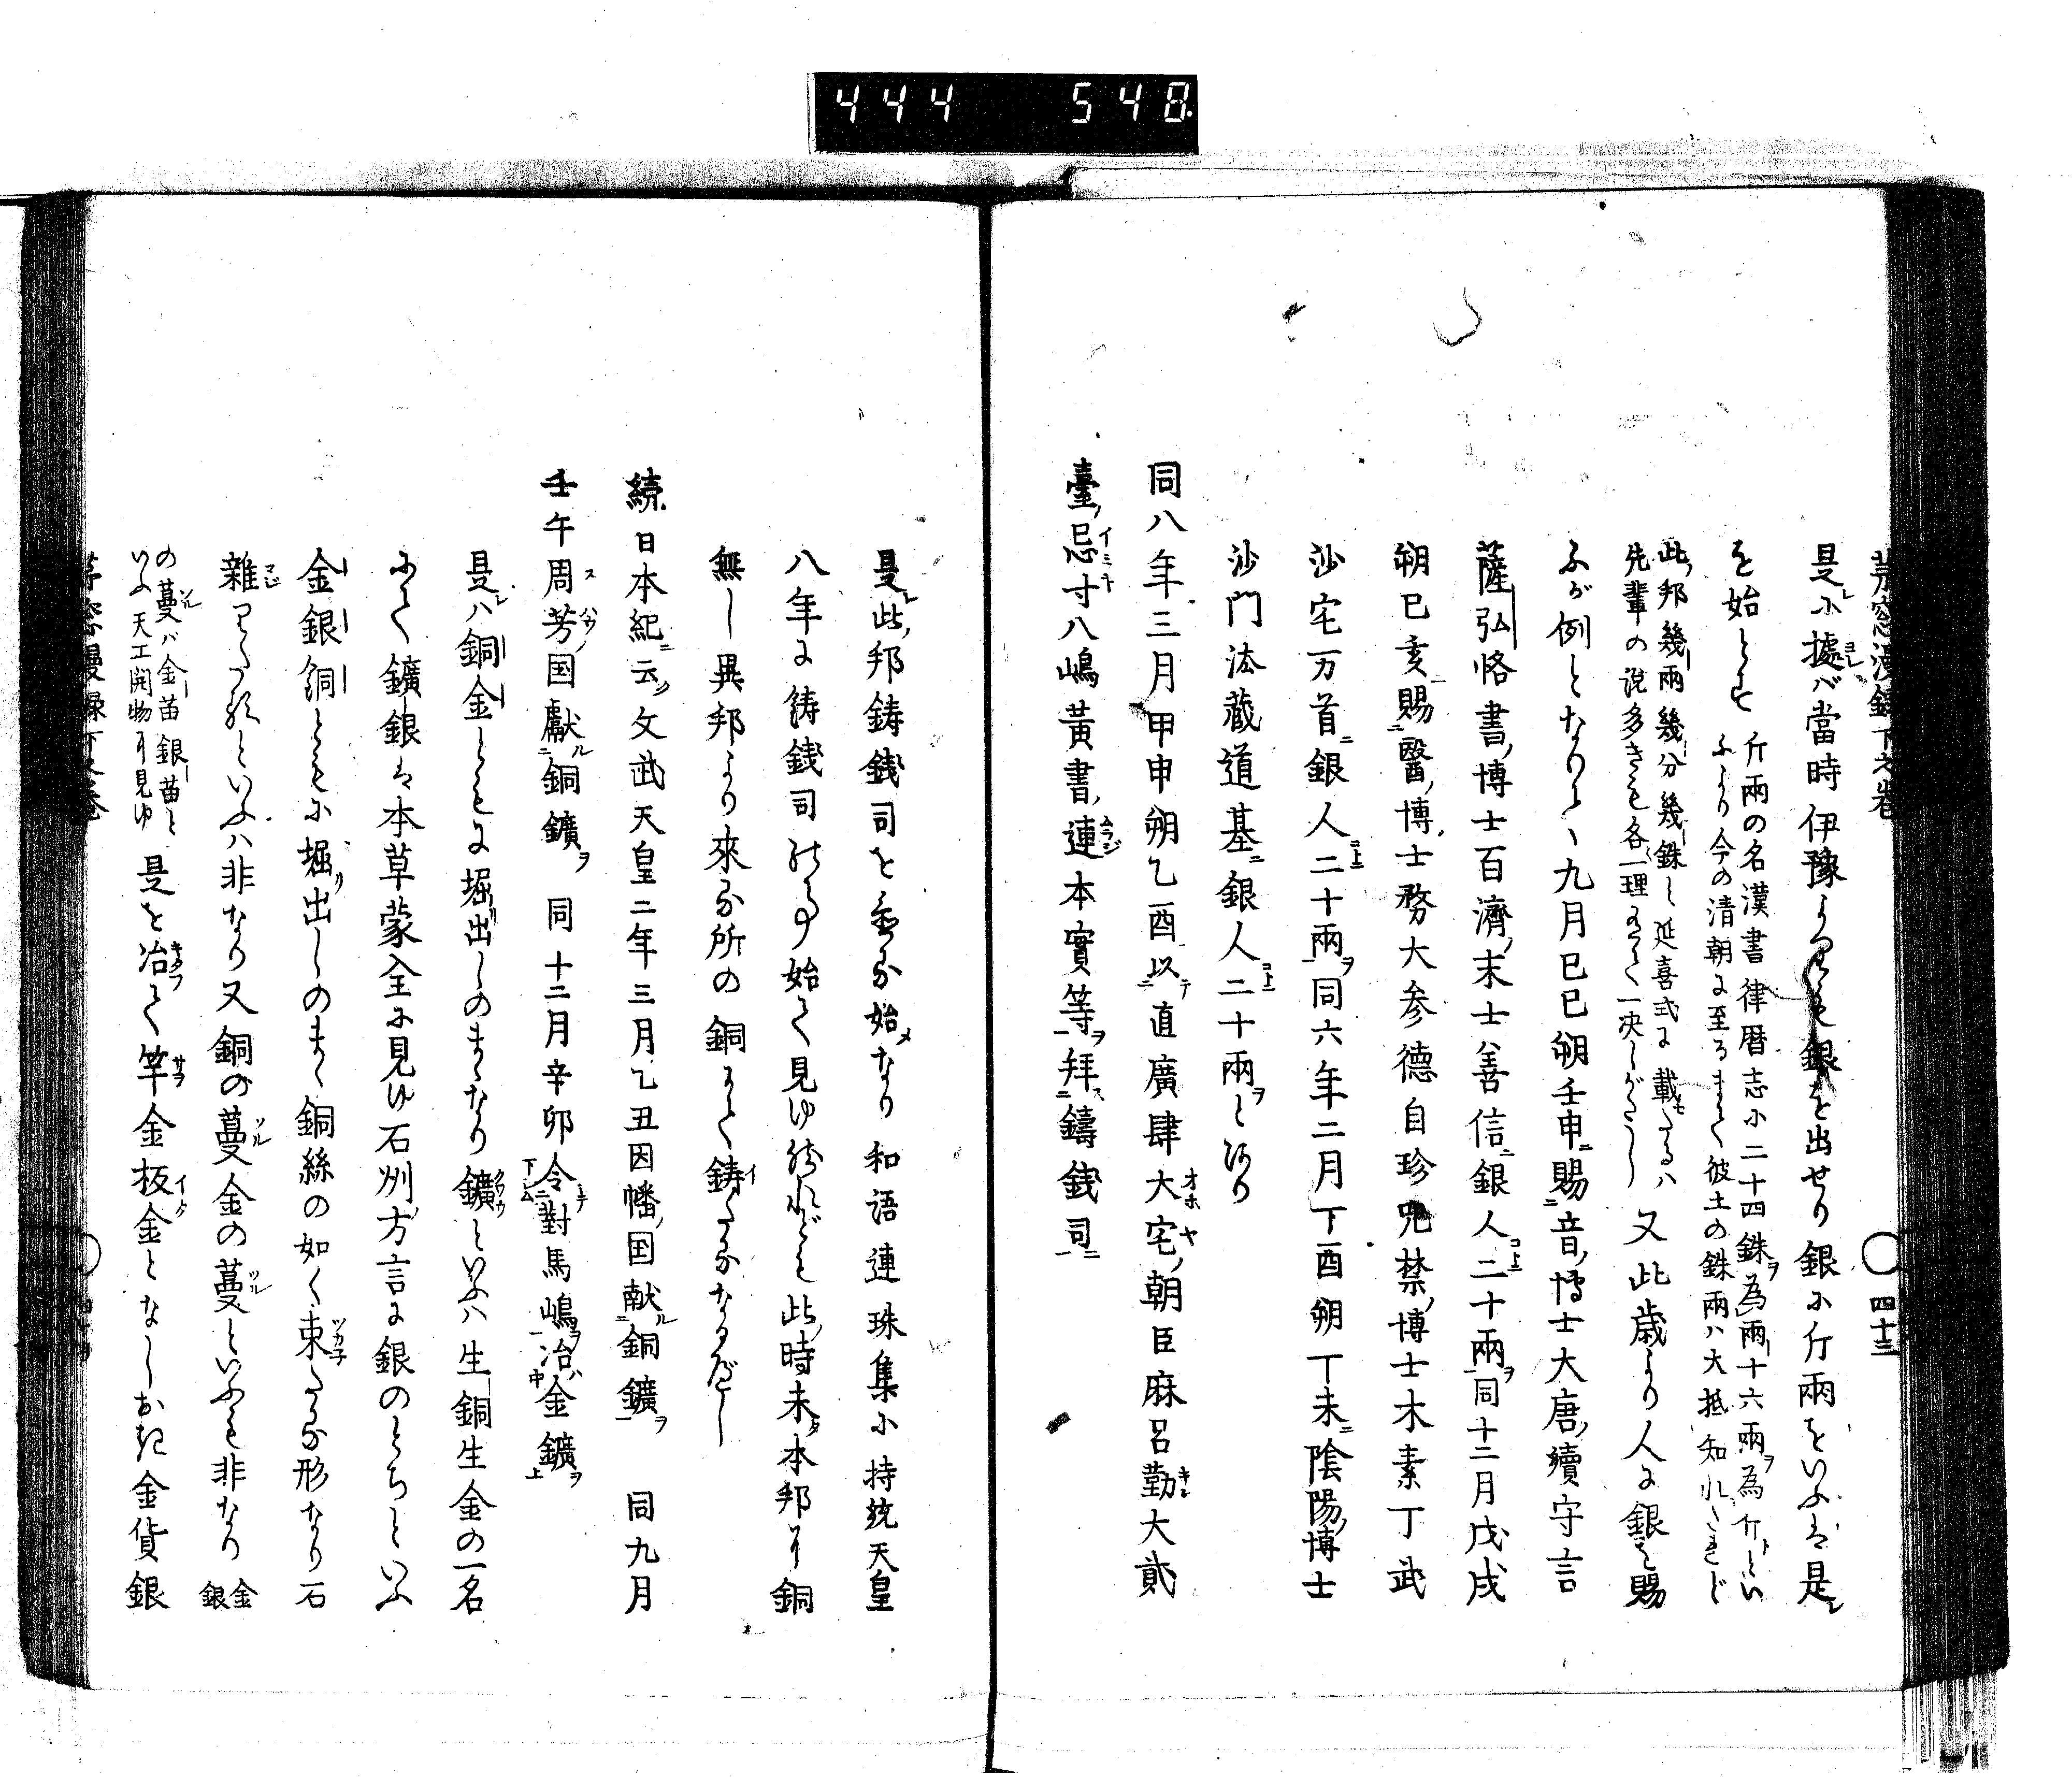 444 548
茅窓漫録下之巻
四十三
是に據バ當時伊豫よりも銀を出せり銀に斤兩をいふは是
を始とす
斤兩の名漢書律暦志に二十四銖ヲ為兩十六兩ヲ為斤トとい
ふより今の清朝に至るまて彼土の銖兩ハ大抵知れたれど
此邦幾兩幾分幾銖と延喜式に載たるハ
先輩の説多きも各一理有て一决しがたし
又此歳より人に銀を賜
ふが例となりて九月己巳朔壬申賜音博士大唐續守言
薩弘恪書博士百濟末士善信銀人二十兩ヲ同十二月戊戌
朔己亥賜醫博士務大参德自珍咒禁博士木素丁武
沙宅万首銀人二十兩ヲ同六年二月丁酉朔丁未陰陽博士
沙門法藏道基銀人二十兩ヲとあり
同八年三月甲申朔乙酉以テ直廣肆大宅朝臣麻呂勤大貳
臺忌寸八嶋黃書連本實等ヲ拜ス鑄銭司ニ
是此邦鋳銭司を置る始なり和語連珠集に持統天皇
八年に鋳銭司の事始て見ゆ然れども此時未本邦に銅
無し異邦より來る所の銅にて鋳たるなるべし
続日本紀ニ云ク文武天皇二年三月乙丑因幡国献ル銅鑛ヲ 同九月
壬午周芳国獻ル銅鑛ヲ 同十二月辛卯令對馬嶋ヲ冶金鑛ヲ
是ハ銅金ともに堀出しのまゝなり鑛といふハ生銅生金の一名
にて鑛銀は本草蒙全に見ゆ石州方言に銀のとちといふ
金銀銅ともに堀リ出しのまゝ銅絲の如く束たる形なり石
雜りたるといふハ非なり又銅の蔓金の蔓といふも非なり
金銀
の蔓バ金苗銀苗と
いふ天工開物に見ゆ
是を冶て竿金板金となしおき金貨銀
茅窓漫録下之巻